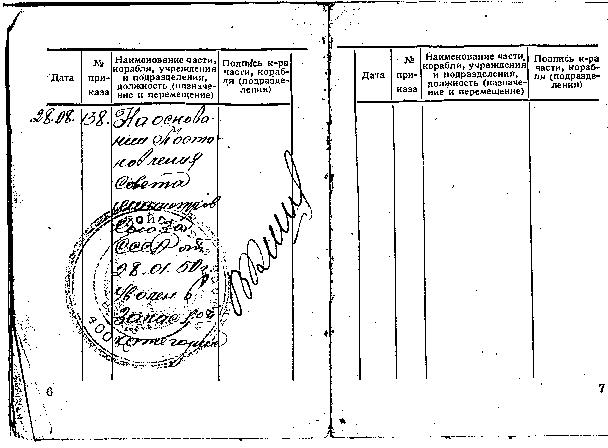 Дата
№ при-каза
Наименование части,
корабля, учреждения
и подразделения,
должность (назначе-
ние и перемещение)
Подпись к-ра
части, кораб-
ля (подразде-
ления)
28.08.
138.
На основа-
нии Поста-
новления
Совета
министров
Союза
СССР от
28.01.50 г.
уволен в
Запас
категории
6
Дата
№ при-каза
Наименование части,
корабля, учреждения
и подразделения,
должность (назначе-
ние и перемещение)
Подпись к-ра
части, кораб-
ля (подразде-
ления)
7